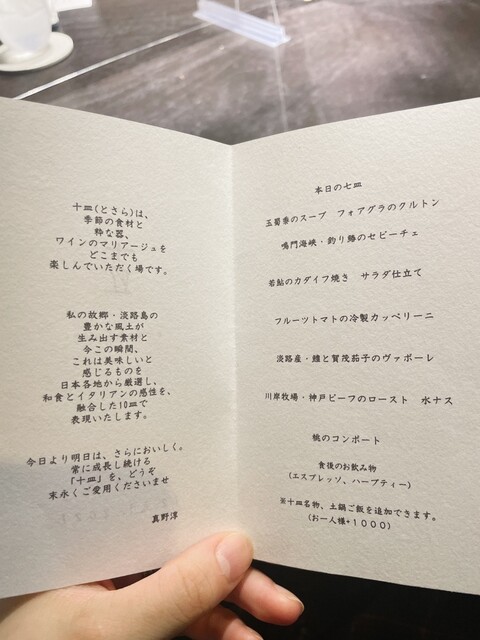 十皿(とさら)は、
季節の食材と
粋な器、
ワインのマリアージュを
どこまでも
楽しんでいただく場です。
私の故郷・淡路島の
豊かな風土が
生み出す素材と
今この瞬間、
これは美味しいと
感じるものを
日本各地から厳選し、
和食とイタリアンの感性を、
融合した10皿で
表現いたします。
今日より明日は、さらにおいしく。
常に成長し続ける
「十皿」を、どうぞ
末永くご愛用くださいませ
真野淳
本日の七皿
玉蜀黍のスープ フォアグラのクルトン
鳴門海峡・釣り鯵のセビーチェ
若鮎のカダイフ焼き サラダ仕立て
フルーツトマトの冷製カッペリーニ
淡路産・鱧と賀茂茄子のヴァポーレ
川岸牧場・神戸ビーフのロースト 水ナス
桃のコンポート
食後のお飲み物
(エスプレッソ、ハーブティー)
※十皿名物、土鍋ご飯を追加できます。
(お一人様+1000)